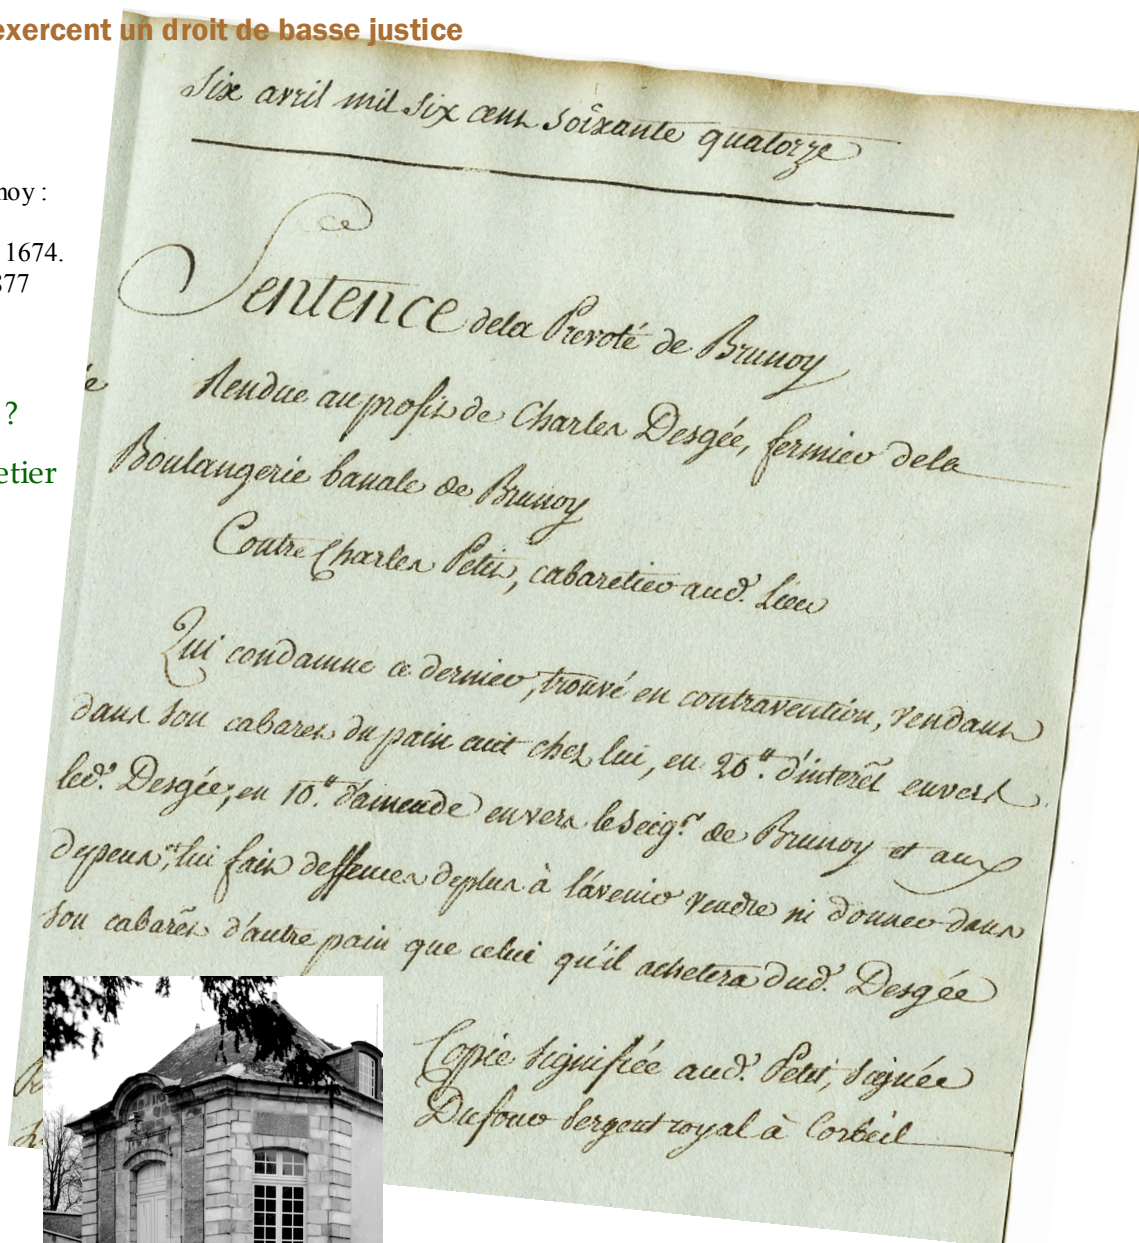 exercent un droit de basse justice
noy :
1674.
877
?
etier
Six avril mil six cent soixante quatorze
Sentence dela Prevoté de Brunoy
Rendue au profit de Charles Desgée, fermier dela
Boulangerie banale de Brunoy
Contre Charles Petit, cabaretier aud.t Lieu
Qui condamne ce dernier, trouvé en contravention, vendant
dans son cabaret du pain cuit chez lui, en 20.tt d'interêt envers
led.t Desgée; en 10.tt d'amende envers le seig.r de Brunoy et aux
depens; lui fait deffenses deplus à l'avenir vendre ni donner dans
son cabaret d'autre pain que celui qu'il achetera dud.t Desgée
Copie signifiée aud.t Petit, signée
Dufour sergent royal à Corbeil